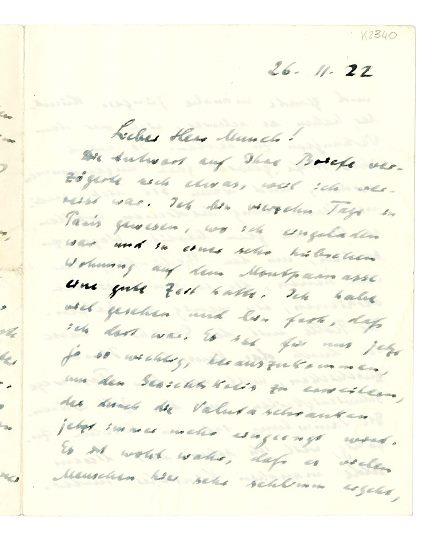 K2840
26. 11. 22
Lieber Herr Munch!
Die Antwort auf Ihre Briefe ver-
zögerte sich etwas, weil ich ver-
reist war. Ich bin vierzehn Tage in
Paris gewesen, wo ich eingeladen
war und in einer sehr hübschen
Wohnung auf dem Montparnasse
eine gute Zeit hatte. Ich habe
viel gesehen und bin froh, daß
ich dort war. Es ist für uns jetzt
ja so wichtig, herauszukommen,
um den Gesichtskreis zu erweitern,
der durch die Valutaschranken
jetzt immer mehr eingeengt wird.
Es ist wohl wahr, daß es vielen
Menschen hier sehr schlimm ergeht,